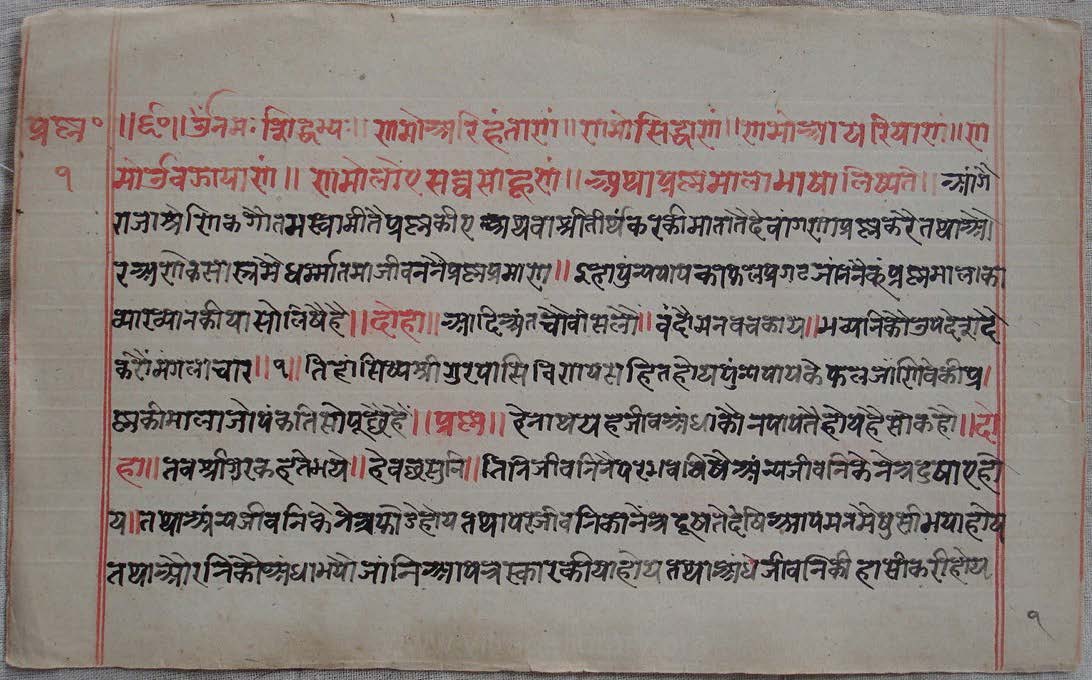 प्रष्ण॰ ॥६०॥ ॐनमः सिद्धेभ्यः॥ णमोअरिहंताणं॥ णमोसिद्धाणं॥ णमोआयरियाणं॥ ण
१ मोउवझायाणं॥ णमोलोएसव्वसाहूणं॥ अथप्रष्णमालाभाषालिष्यते॥ आगै
राजाश्रेणिकगौतमस्वामीतैप्रष्णकीए अथवाश्रीतीर्थंकरकीमातातैदेवांगणाप्रष्णकरैतथाऔ
रअणेकसास्त्रमैधर्म्मातमाजीवननैप्रष्णप्रमाण॥ इहापुंन्यपापकाफलप्रगटजांननैकूंप्रष्णमालाका
व्याख्यानकीयासोलिषैहै॥ दोहा॥ आदिअंतचौवीसलौं॥ वंदौंमनवचकाय॥ भव्यनिकौउपदेशदे
करौंमंगलाचार॥१॥ तिहांसिष्यश्रीगुरपासिविनयसहितहोयपुंन्यपापकेफलजांणिवेकीप्र
ष्णकीमालाजोपंकतिसोपूछैहैं॥ प्रष्ण॥ हेनाथयहजीवअंधाकौनपापतैहोयहैसोकहौ॥ दो
हा॥ तवश्रीगुरकहतेभये॥ हेवछसुनि॥ तिनिजीवनिनैपरभवविषैअंन्यजीवनिकेनेत्रदुषाएहो
य॥ तथाअंन्यजीवनिकेनेत्रफोडेहोयतथापरजीवनिकेनेत्रदूषतेदेषिआपमनमैषुसीभयाहोय
तथाऔरनिकौअंधाभयौजांनिआपत्रस्कारकीयाहोयतथाअंधेजीवनिकीहासीकरीहोय
१